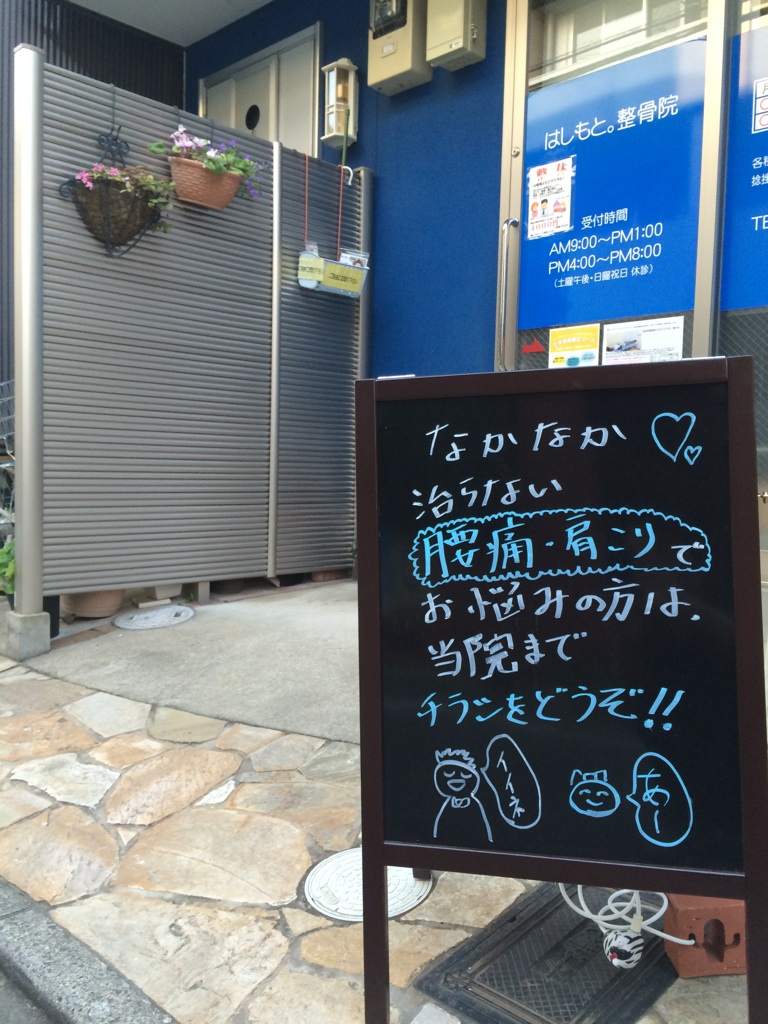 はしもと。整骨院
受付時間
AM9:00〜PM1:00
PM4:00〜PM8:00
(土曜午後・日曜祝日 休診)
なかなか
治らない
腰痛・肩こりで
お悩みの方は、
当院まで
チラシをどうぞ!!
イイネ
あー